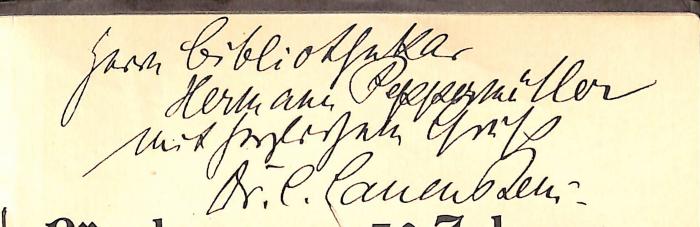 Herrn Bibliothekar
Hermann Peppermüller
mit herzlichem Gruß
Dr. C. Lauenstein.